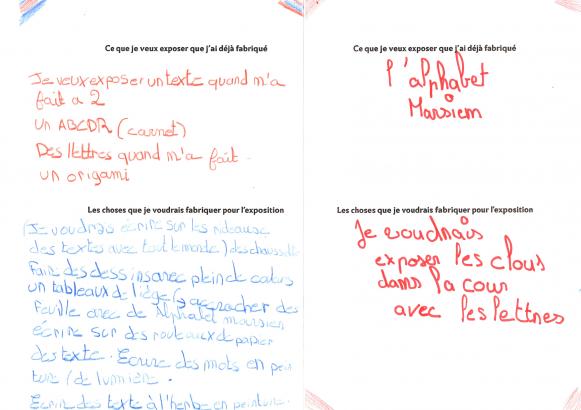 Ce que je veux exposer que j'ai déjà fabriqué
Je veux exposer un texte quand m'a
fait a 2
un ABCDR (carnet)
Des lettres quand m'a fait
un origami
Les choses que je voudrais fabriquer pour l'exposition
(Je voudrais écrire sur les rideause
des textes avec tout le monde) des chaussette
Faire des dessins avec plein de coleurs
un tableaux de liège
feuille avec de Alphabet marsien
écrire sur des routeaux de papier
des texte. Ecrire des mots en pein
ture / de lumière.
Ecrire des texte à l'herbe en peinture.
Ce que je veux exposer que j'ai déjà fabriqué
l'alphabet
Marsiem
Les choses que je voudrais fabriquer pour l'exposition
Je voudrais
exposer les clous
dans la cour
avec les lettres